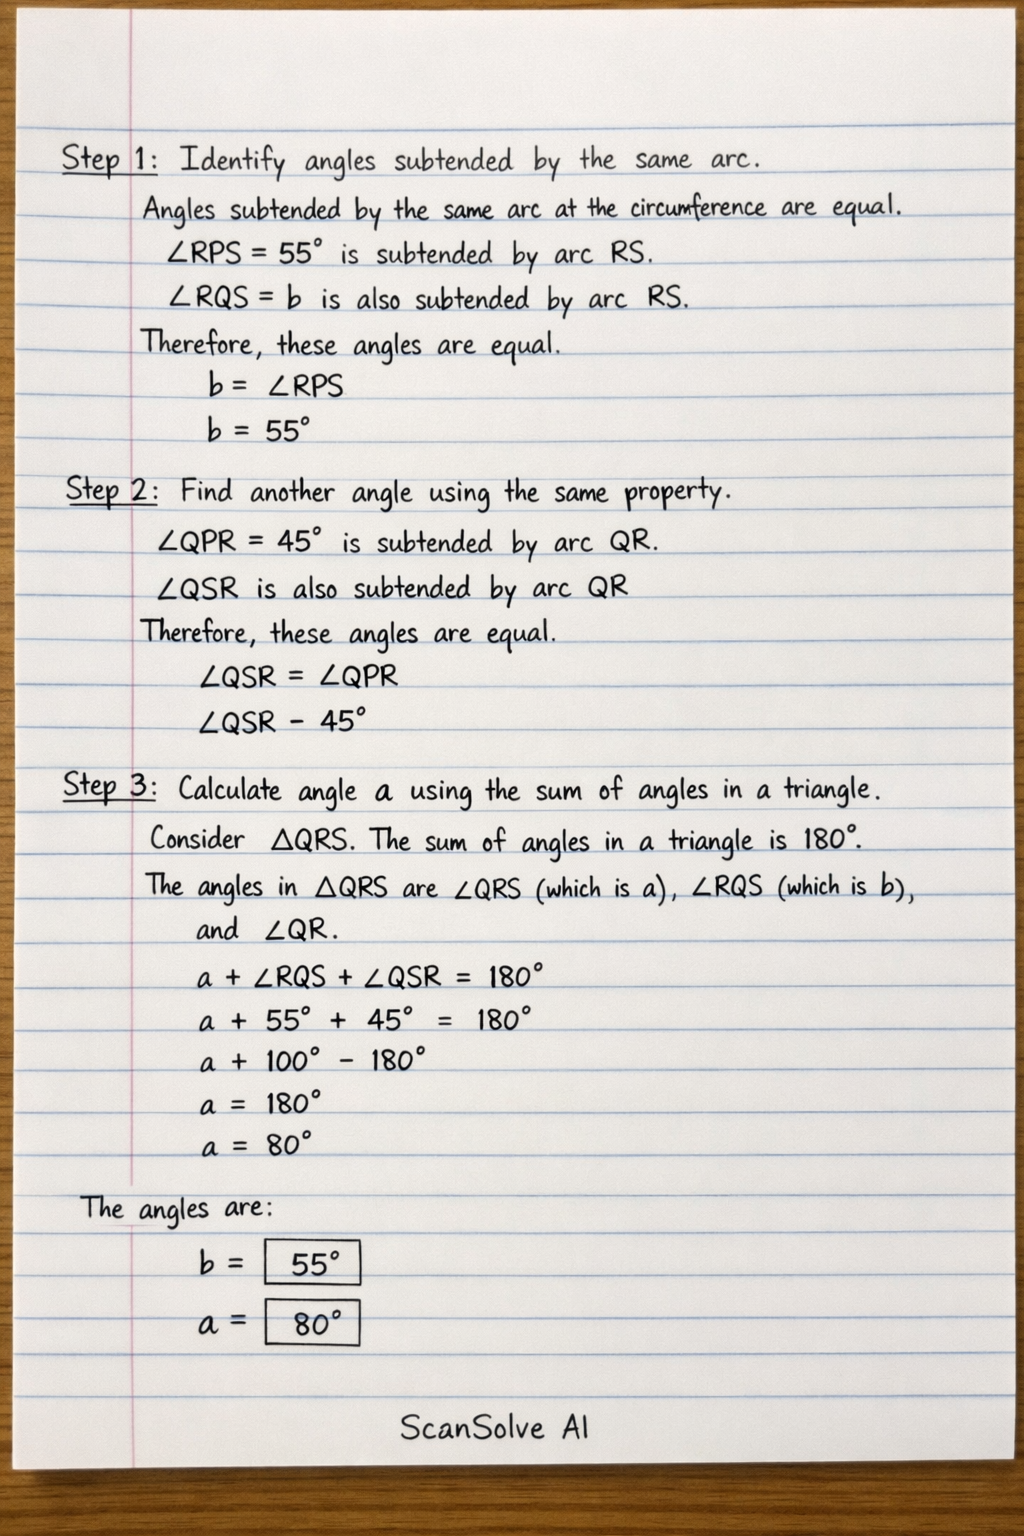 Step 1: Identify angles subtended by the same arc.
Angles subtended by the same arc at the circumference are equal.
∠RPS = 55° is subtended by arc RS.
∠RQS = b is also subtended by arc RS.
Therefore, these angles are equal.
b = ∠RPS
b = 55°
Step 2: Find another angle using the same property.
∠QPR = 45° is subtended by arc QR.
∠QSR is also subtended by arc QR
Therefore, these angles are equal.
∠QSR = ∠QPR
∠QSR - 45°
Step 3: Calculate angle a using the sum of angles in a triangle.
Consider ΔQRS. The sum of angles in a triangle is 180°.
The angles in ΔQRS are ∠QRS (which is a), ∠RQS (which is b),
and ∠QR.
a + ∠RQS + ∠QSR = 180°
a + 55° + 45° = 180°
a + 100° - 180°
a = 180°
a = 80°
The angles are:
b = 55°
a = 80°
ScanSolve AI